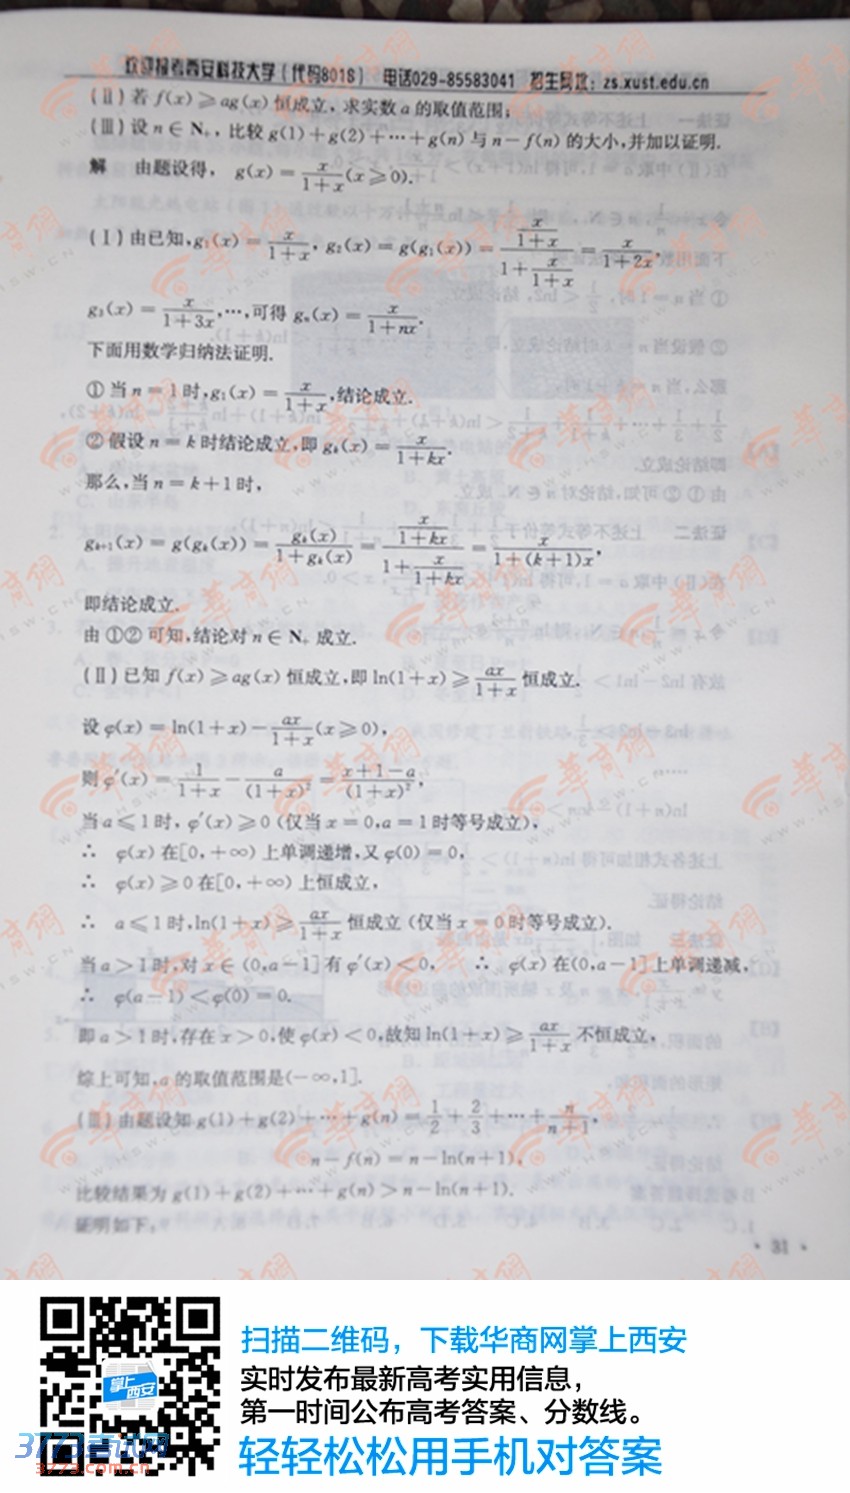 欢迎报考西安科技大学(代码8018) 电话029-85583041 招生网址: zs.xust.edu.cn
(Ⅱ)若 f(x)⩾ag(x) 恒成立,求实数 a 的取值范围;
(Ⅲ)设 n∈N₊, 比较 g(1)+g(2)+⋯+g(n) 与 n−f(n) 的大小,并加以证明.
解 由题设得, g(x)=x/(1+x)(x⩾0).
(Ⅰ)由已知,g₁(x)=x/(1+x), g₂(x)=g(g₁(x))=(x/(1+x))/(1+x/(1+x))=x/(1+2x),
g₃(x)=x/(1+3x),⋯,可得 gₙ(x)=x/(1+nx).
下面用数学归纳法证明.
①当 n=1 时,g₁(x)=x/(1+x),结论成立.
②假设 n=k 时结论成立,即 gₖ(x)=x/(1+kx).
那么,当 n=k+1 时,
gₖ₊₁(x)=g(gₖ(x))=gₖ(x)/(1+gₖ(x))=(x/(1+kx))/(1+x/(1+kx))=x/(1+(k+1)x),
即结论成立.
由①②可知,结论对 n∈N₊ 成立.
(Ⅱ)已知 f(x)⩾ag(x) 恒成立,即 ln(1+x)⩾ax/(1+x) 恒成立.
设 φ(x)=ln(1+x)−ax/(1+x)(x⩾0),
则 φ′(x)=1/(1+x)−a/(1+x)²=(x+1−a)/(1+x)²,
当 a⩽1 时, φ′(x)⩾0(仅当 x=0,a=1 时等号成立),
∴ φ(x)在[0,+∞)上单调递增,又 φ(0)=0,
∴ φ(x)⩾0 在[0,+∞)上恒成立,
∴ a⩽1 时,ln(1+x)⩾ax/(1+x) 恒成立(仅当 x=0 时等号成立).
当 a>1 时,对 x∈(0,a−1]有 φ′(x)<0, ∴ φ(x)在(0,a−1]上单调递减,
∴ φ(a−1)<φ(0)=0.
即 a>1 时,存在 x>0,使 φ(x)<0,故知 ln(1+x)⩾ax/(1+x) 不恒成立,
综上可知,a 的取值范围是(−∞,1].
(Ⅲ)由题设知 g(1)+g(2)+⋯+g(n)=1/2+2/3+⋯+n/(n+1),
n−f(n)=n−ln(n+1),
比较结果为 g(1)+g(2)+⋯+g(n)>n−ln(n+1).
证明如下:
· 31 ·
华商网
WWW.HSW.CN
掌上西安
3773考试网
3773.com.cn
扫描二维码，下载华商网掌上西安
实时发布最新高考实用信息，
第一时间公布高考答案、分数线。
轻轻松松用手机对答案